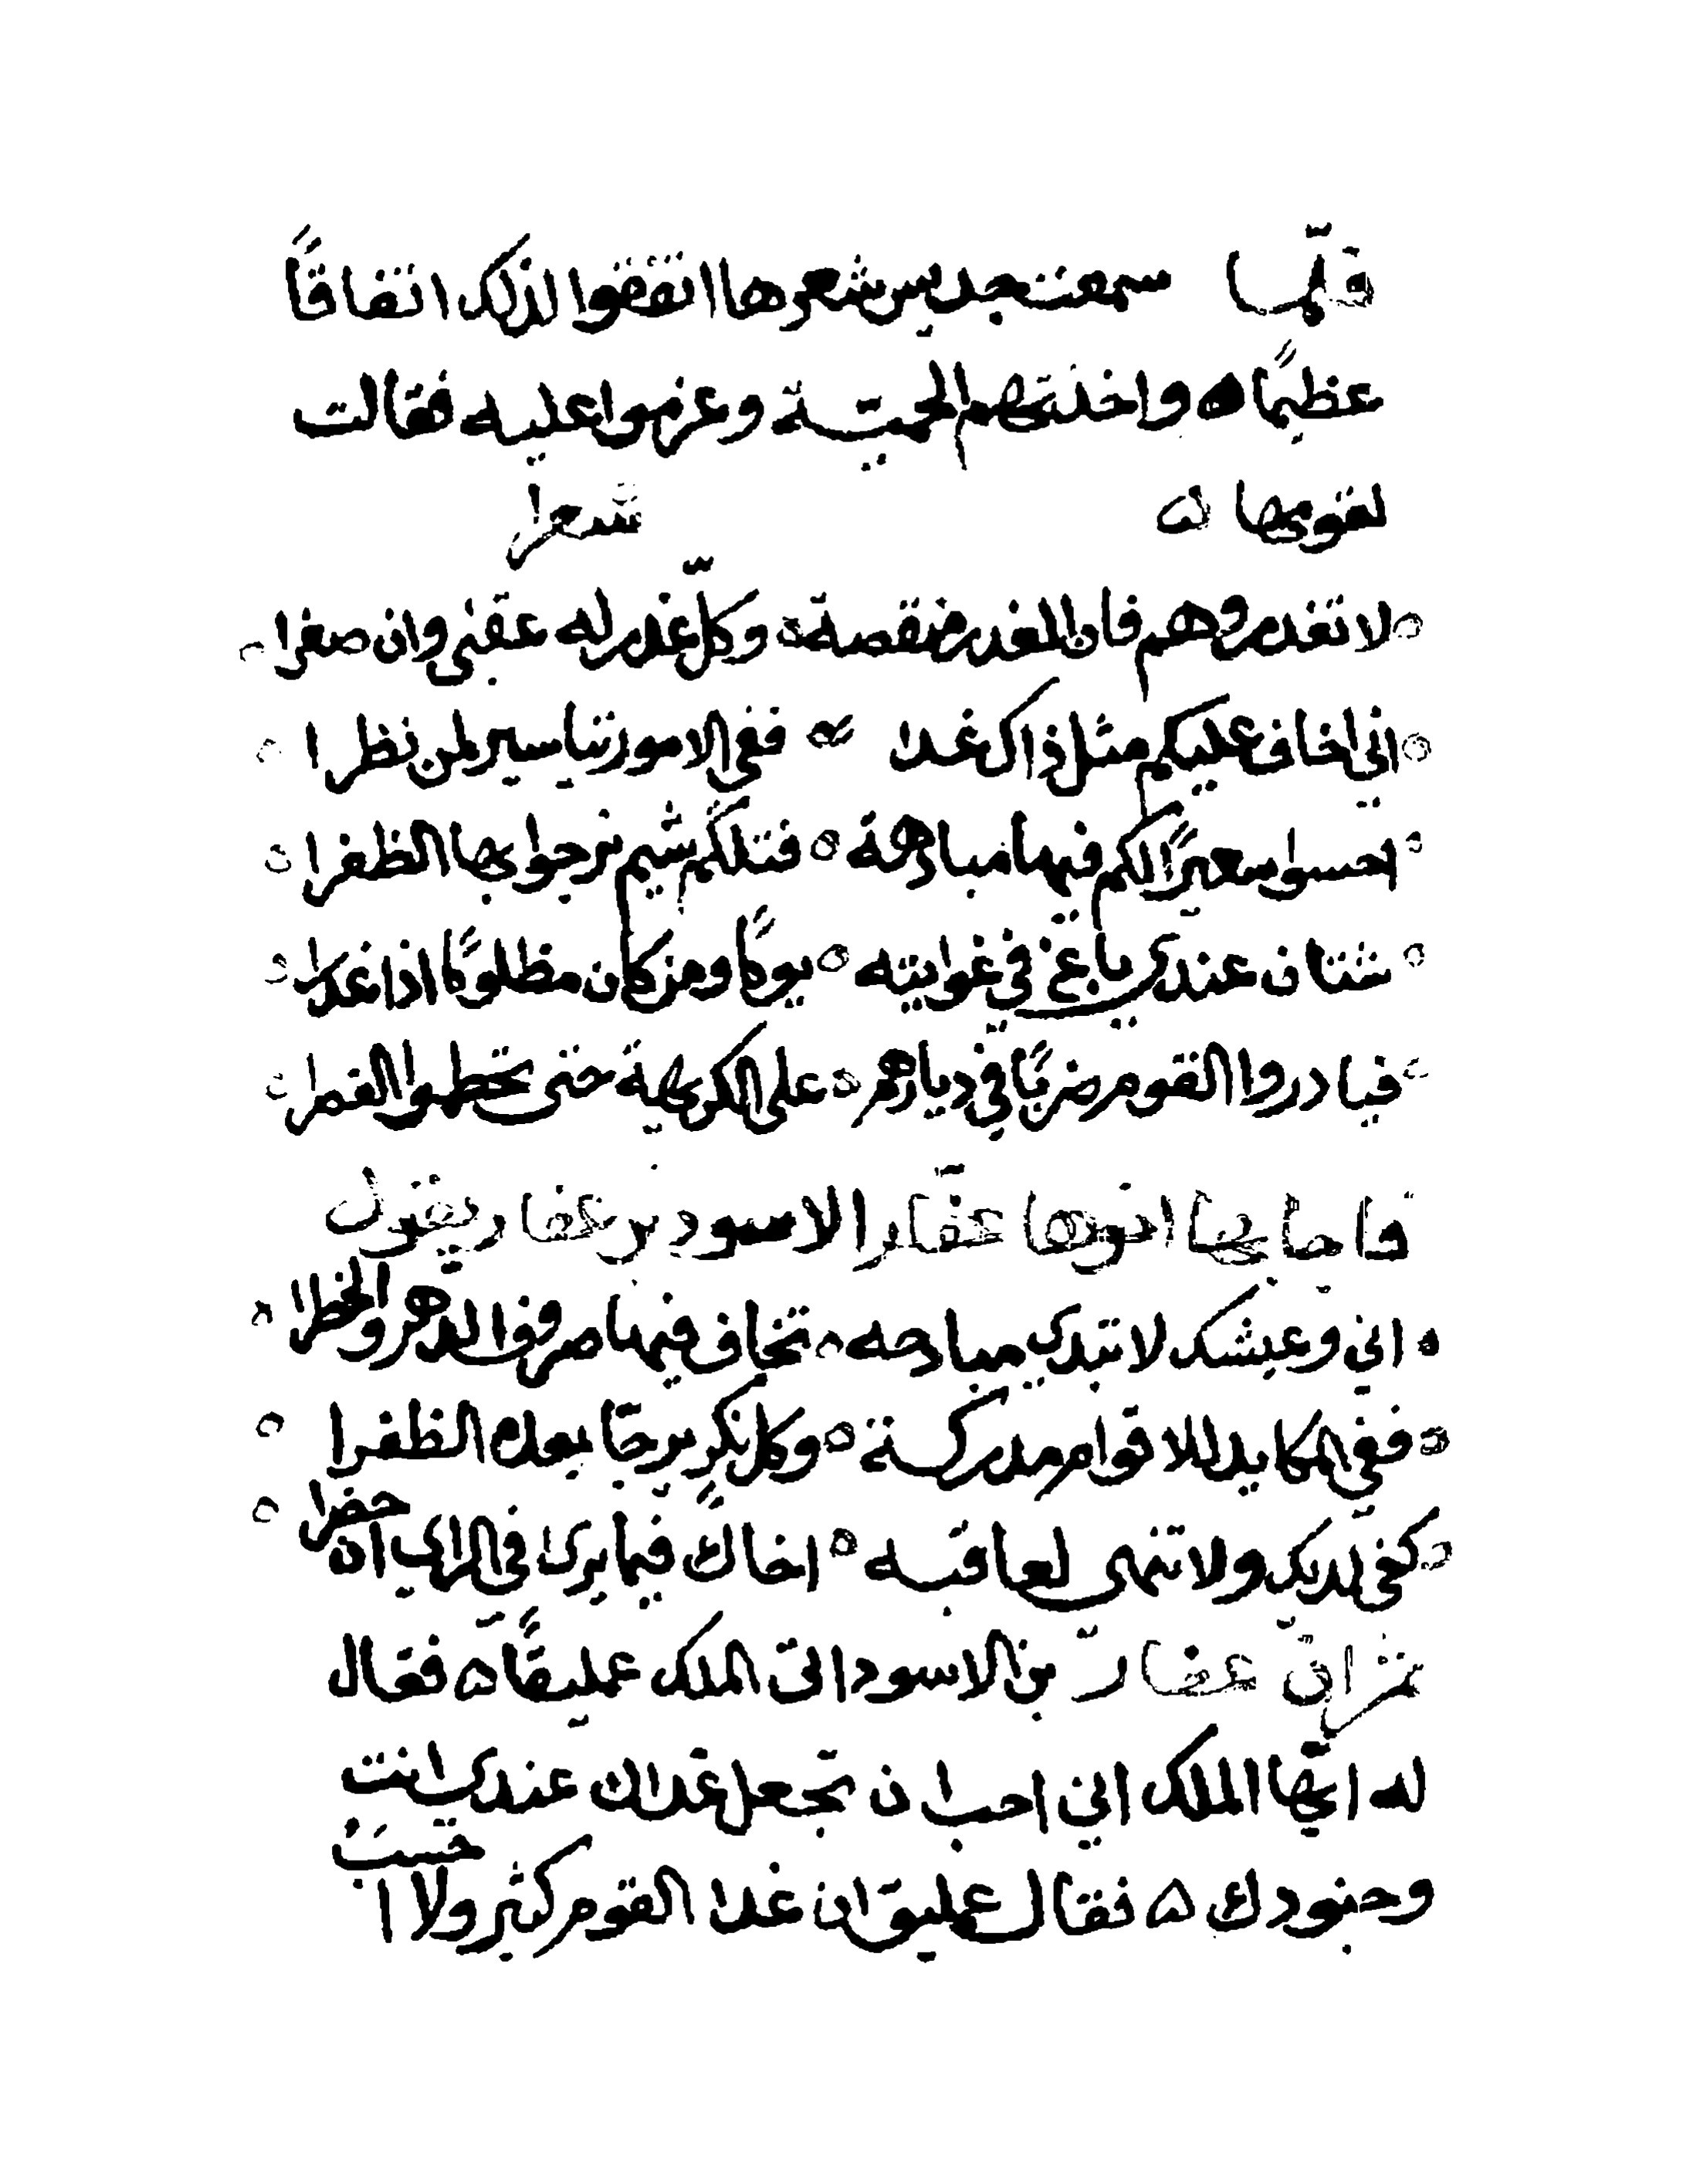 فلمّا سمعت جديس شعرها اتفقوا لذلك اتفاقاً
عظيمًا ه واخذتهم الحميّة وعزموا عليه فقالت
لقومها ه شعرا
لا تغدروهم فان الغدر منقصة ه وكلّ غدر له عقبى وان صغرا
اني اخاف عليكم مثل ذاك غدا ه ففي الامور تياسير لمن نظرا
احسوا سعيرًا لكم فيها مباداهة ه فتلكم شيم نرجوا بها الظفرا
شتان عندي باغ في غوايته ه يومًا ومن كان مظلومًا اذا غدرا
فبادروا القوم ضربًا في ديارهم ه على الكريهة حتى تخطموا القصرا
فاجابها اخوها عفّار الاسود بن عفار يقول
اني وعيشك لا تبدي مباداحه ه تخاف فيها صروف الدهر والخطرا
ففي المكايد للاقوام مدركة ه وكل نكر يرجّا بعده الظفرا
كفي لديك ولا تنهى لعاقبه ه اخاك فيما يرى في الراي ان حضرا
ثم ان عفار بن الاسود اتى الملك عمليقًا ه فقال
له ايّها الملك اني احب ان تجعل غداك عندي انت
وجنودك ه فقال عمليق ان غدا القوم كثير ولا احسب